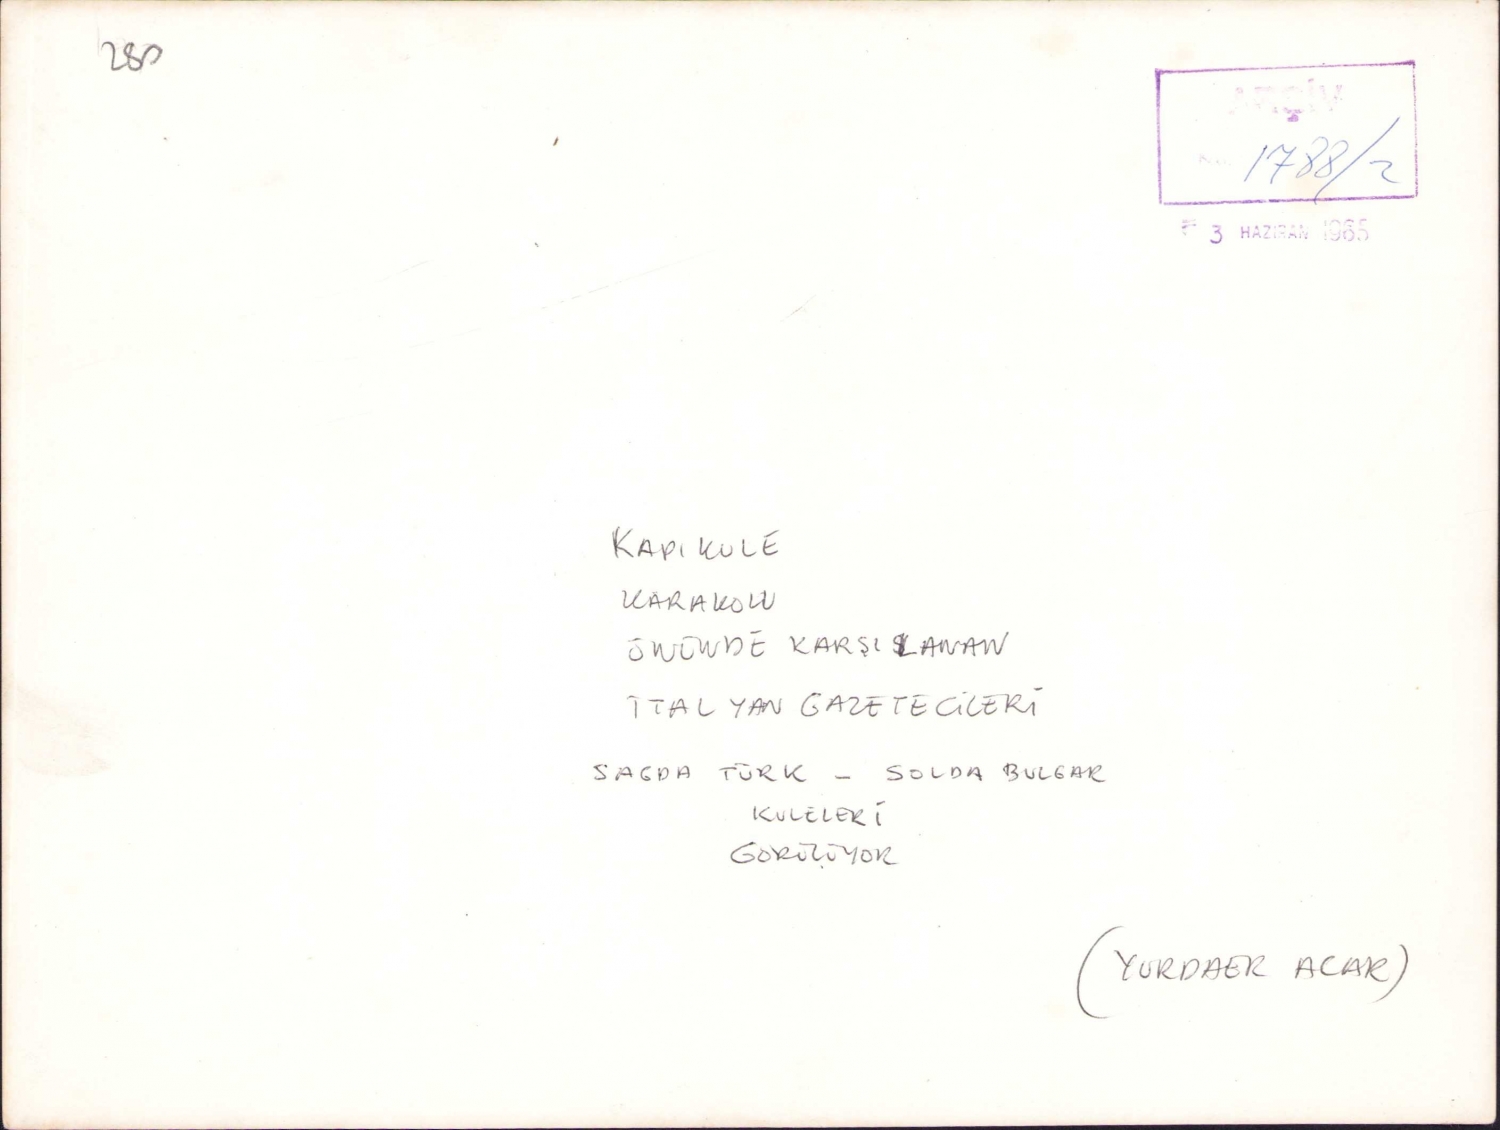 280
ARŞİV
No. 1788/2
3 HAZİRAN 1965
KAPIKULE
KARAKOLU
ÖNÜNDE KARŞILANAN
İTALYAN GAZETECİLERİ
SAGDA TÜRK – SOLDA BULGAR
KULELERİ
GÖRÜLÜYOR
(YURDAER ACAR)